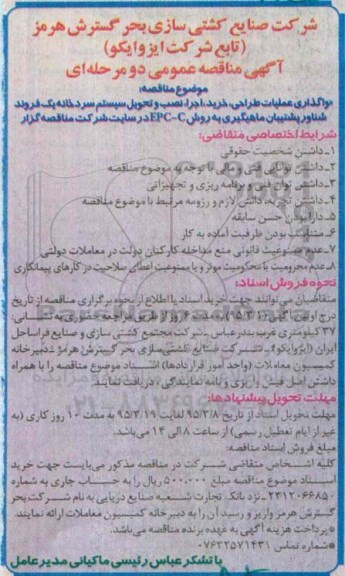 شرکت صنایع کشتی سازی بحر گسترش هرمز
(تابع شرکت ایزوایکو)
آگهی مناقصه عمومی دو مرحله‌ای
موضوع مناقصه:
واگذاری عملیات طراحی، خرید، اجرا، نصب و تحویل سیستم سردخانه یک فروند
شناور پشتیبان ماهیگیری به روش EPC-C در سایت شرکت مناقصه گزار
شرایط اختصاصی متقاضی:
۱- داشتن شخصیت حقوقی
۲- داشتن توانایی فنی و مالی با توجه به موضوع مناقصه
۳- داشتن توان فنی و برنامه ریزی و تجهیزاتی
۴- داشتن تجربه، دانش لازم و رزومه مرتبط با موضوع مناقصه
۵- دارا بودن حسن سابقه
۶- متناسب بودن ظرفیت آماده به کار
۷- عدم ممنوعیت قانونی منع مداخله کارکنان دولت در معاملات دولتی
۸- عدم محرومیت یا محکومیت موثر و یا ممنوعیت اعطای صلاحیت در کارهای پیمانکاری
نحوه فروش اسناد:
متقاضیان می توانند جهت خرید اسناد یا اطلاع از نحوه برگزاری مناقصه از تاریخ
درج اولین آگهی لغایت ۶ روز از طریق مراجعه حضوری به نشانی:
۳۷ کیلومتری غرب بندرعباس - شرکت مجتمع کشتی سازی و صنایع فراساحل
ایران (ایزوایکو) - شرکت صنایع کشتی سازی بحر گسترش هرمز - دبیرخانه
کمیسیون معاملات (واحد امور قراردادها) اسناد موضوع مناقصه را با همراه
داشتن اصل فیش واریزی و نامه نمایندگی، دریافت نمایند.
مهلت تحویل پیشنهادها:
مهلت تحویل اسناد از تاریخ ۹۵/۳/۸ لغایت ۹۵/۳/۱۹ به مدت ۱۰ روز کاری (به
غیر از ایام تعطیل رسمی) از ساعت ۸ الی ۱۴ می‌باشد.
مبلغ فروش اسناد مناقصه:
کلیه اشخاص متقاضی شرکت در مناقصه مذکور می‌بایست جهت خرید
اسناد موضوع مناقصه مبلغ ۵۰۰،۰۰۰ ریال را به حساب جاری به شماره
۲۴۱۲۰۶۶۸۵۰ نزد بانک تجارت شعبه صنایع دریایی به نام شرکت بحر
گسترش هرمز واریز و رسید آن را به دبیرخانه کمیسیون معاملات ارائه نمایند.
*پرداخت هزینه آگهی به عهده برنده مناقصه می‌باشد.
*شماره تماس ۰۷۶۳۲۵۷۱۴۳۱
با تشکر عباس رئیسی ماکیانی مدیر عامل